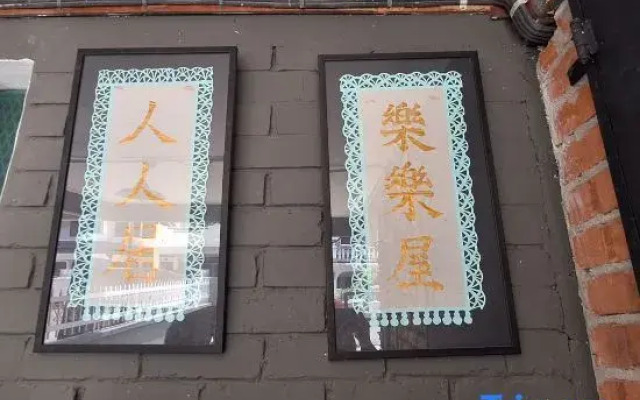 樂樂屋
人人